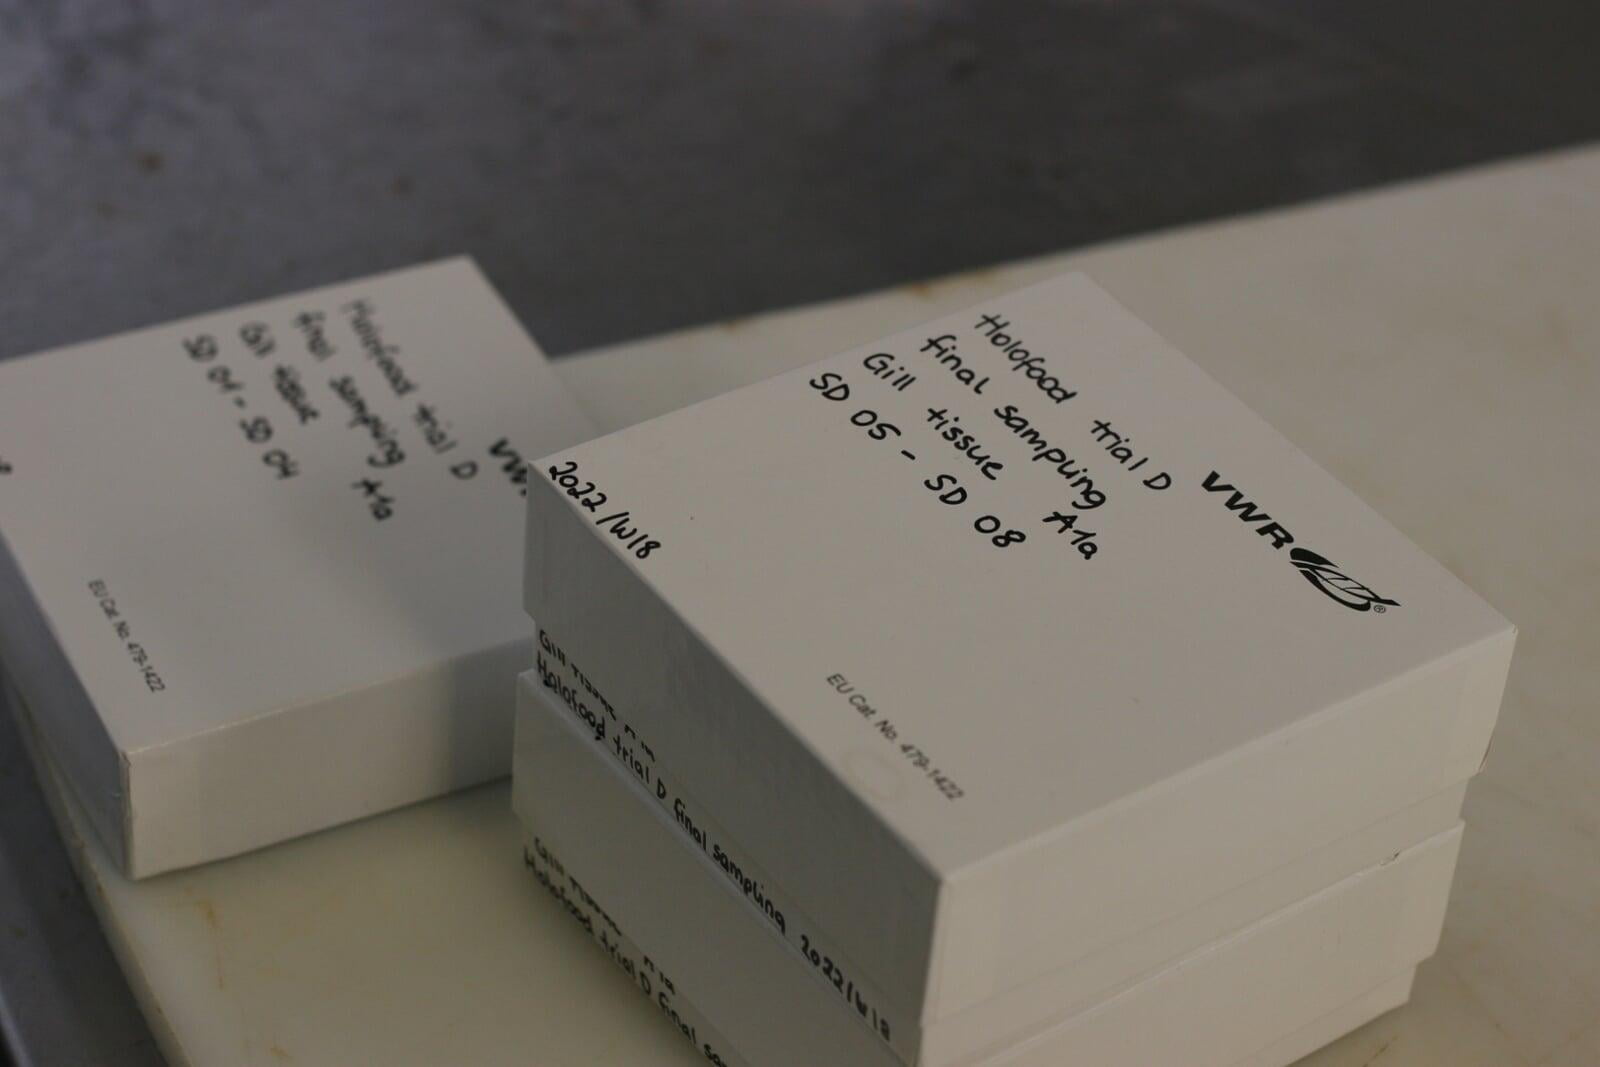 Holofood trial D
final sampling A1a
Gill tissue
SD 01 - SD 04
VWR
EU Cat. No. 479-1422
Holofood trial D
final sampling A1a
Gill tissue
SD 05 - SD 08
2022/W18
VWR
EU Cat. No. 479-1422
Gill Tissue A1a
Holofood trial D final sampling 2022/W18
Gill Tissue A1a
Holofood trial D final